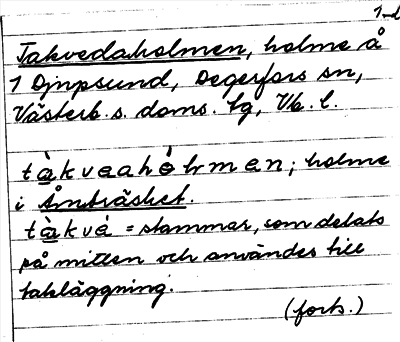 Takvedaholmen, holme å
1 Djupsund, Degerfors sn,
Västerb. s. doms. tg, Vb. l.
tàkveahólrmen; holme
i Åmträsket.
tàkvé = stammar, som delats
på mitten och användes till
takläggning.
(forts.)